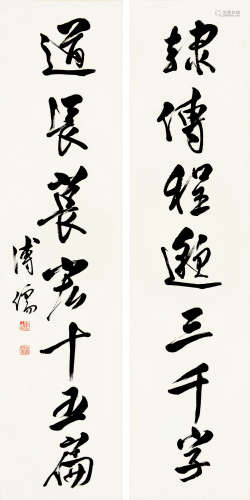 隸傳程邈三千字
道長萇宏十五篇
溥儒